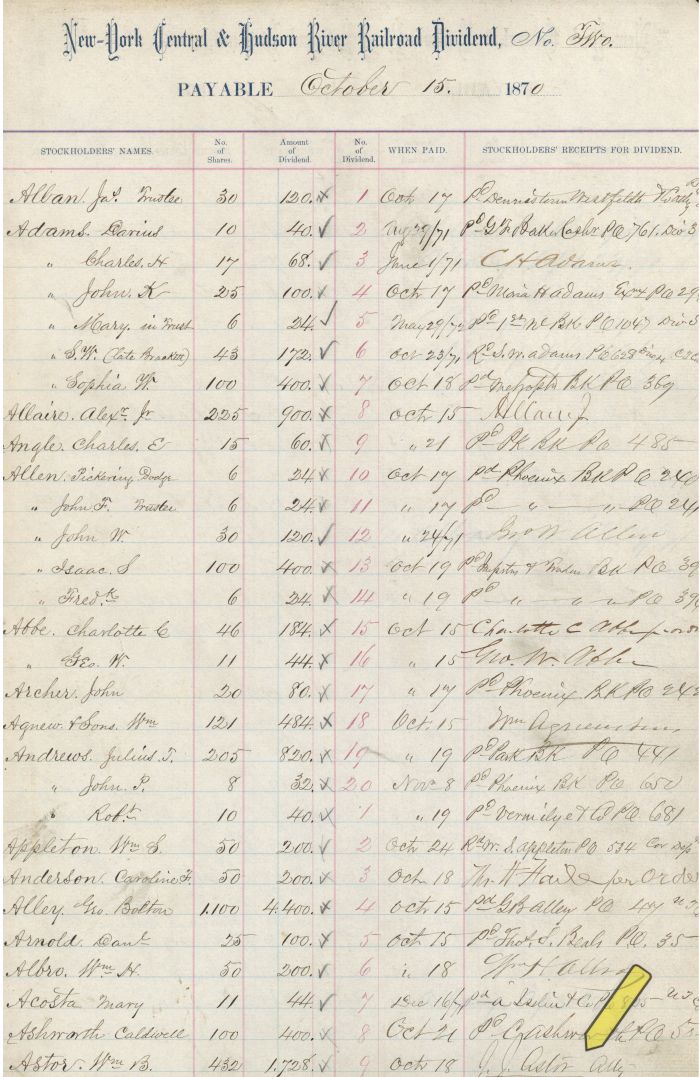 New-York Central & Hudson River Railroad Dividend, No. Two.
PAYABLE October 15. 1870
STOCKHOLDERS' NAMES. No. of Shares. Amount of Dividend. No. of Dividend. WHEN PAID. STOCKHOLDERS' RECEIPTS FOR DIVIDEND.
Alban. Jas. Trustee 30 120. x 1 Octr 17 Pd
Adams. Darius 10 40. ✓ 2 Aug 29/71 Pd G F Baker Cashr PO 761. Div 3
" Charles. H 17 68. ✓ 3 June 1/71 C H Adams.
" John. K 25 100. x 4 Octr 17 Pd Maria H Adams Exx PO 29
" Mary. in Trust 6 24. ✓ 5 May 29/72 Pd 1st Nl Bk. PO 1047 Div 3
" S. W. (late Brackett) 43 172. ✓ 6 Oct 23/71 Rd S. W. Adams PO 628
" Sophia W 100 400. ✓ 7 Oct 18 Pd Metropotn BK PO 369
Allaire. Alexr. Jr 225 900. x 8 Octr 15 Allaire Jr
Angle. Charles. E 15 60. x 9 " 21 Pd Pk BK PO 485
Allen. Pickering Dodge 6 24 x 10 Oct 17 pd Phoenix BK PO 240
" John F. Trustee 6 24 x 11 " 17 Pd — " — " — PO 241
" John W. 30 120. ✓ 12 " 24/71 Jno W Allen
" Isaac. S 100 400. x 13 Oct 19 Pd Importrs & Traders BK PO 39
" Fredk. 6 24. x 14 " 19 Pd " " " PO 39
Abbe. Charlotte C 46 184. x 15 Oct 15 Charlotte C Abbe
" Geo. W. 11 44. x 16 " 15 Geo. W. Abbe
Archer. John 20 80. x 17 " 17 Pd Phoenix BK PO 242
Agnew & Sons. Wm 121 484. x 18 Oct. 15 Wm Agnew & Sons
Andrews. Julius. T. 205 820. x 19 " 19 Pd Park BK PO 441
" John. P. 8 32. x 20 Novr 8 Pd Phoenix BK PO 650
" Robt. 10 40. x 1 " 19 Pd Vermilye & Co PO 681
Appleton. Wm S. 50 200. ✓ 2 Octr 24 Rd W. S. Appleton PO 534 Cor Dep
Anderson. Caroline F. 50 200. x 3 Oct. 18 per order
Alley. Geo. Bolton 1.100 4.400. x 4 Oct 15 pd GB Alley PO 47
Arnold. Danl. 25 100. x 5 Oct. 15 Pd Thos. J. Beals PO. 35
Albro. Wm H. 50 200. ✓ 6 ". 18 Wm H Albro
Acosta Mary 11 44. ✓ 7 Dec 16/71 Pd A Iselin & Co PO
Ashworth Caldwell 100 400. x 8 Oct 21 Pd C Ashworth PO
Astor. Wm B. 432 1.728. x 9 Octr 18 J. J. Astor Atty